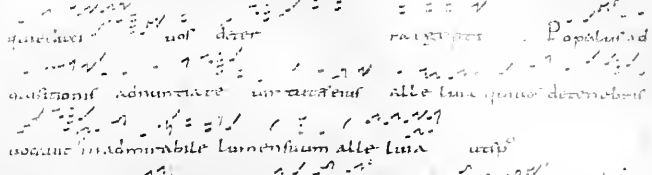 uos de ter ra egypti Populus ad
quisitionis adnuntiate uirtutes eius alle luia qui uos de tenebris
uocauit in admirabile lumen suum alle luia